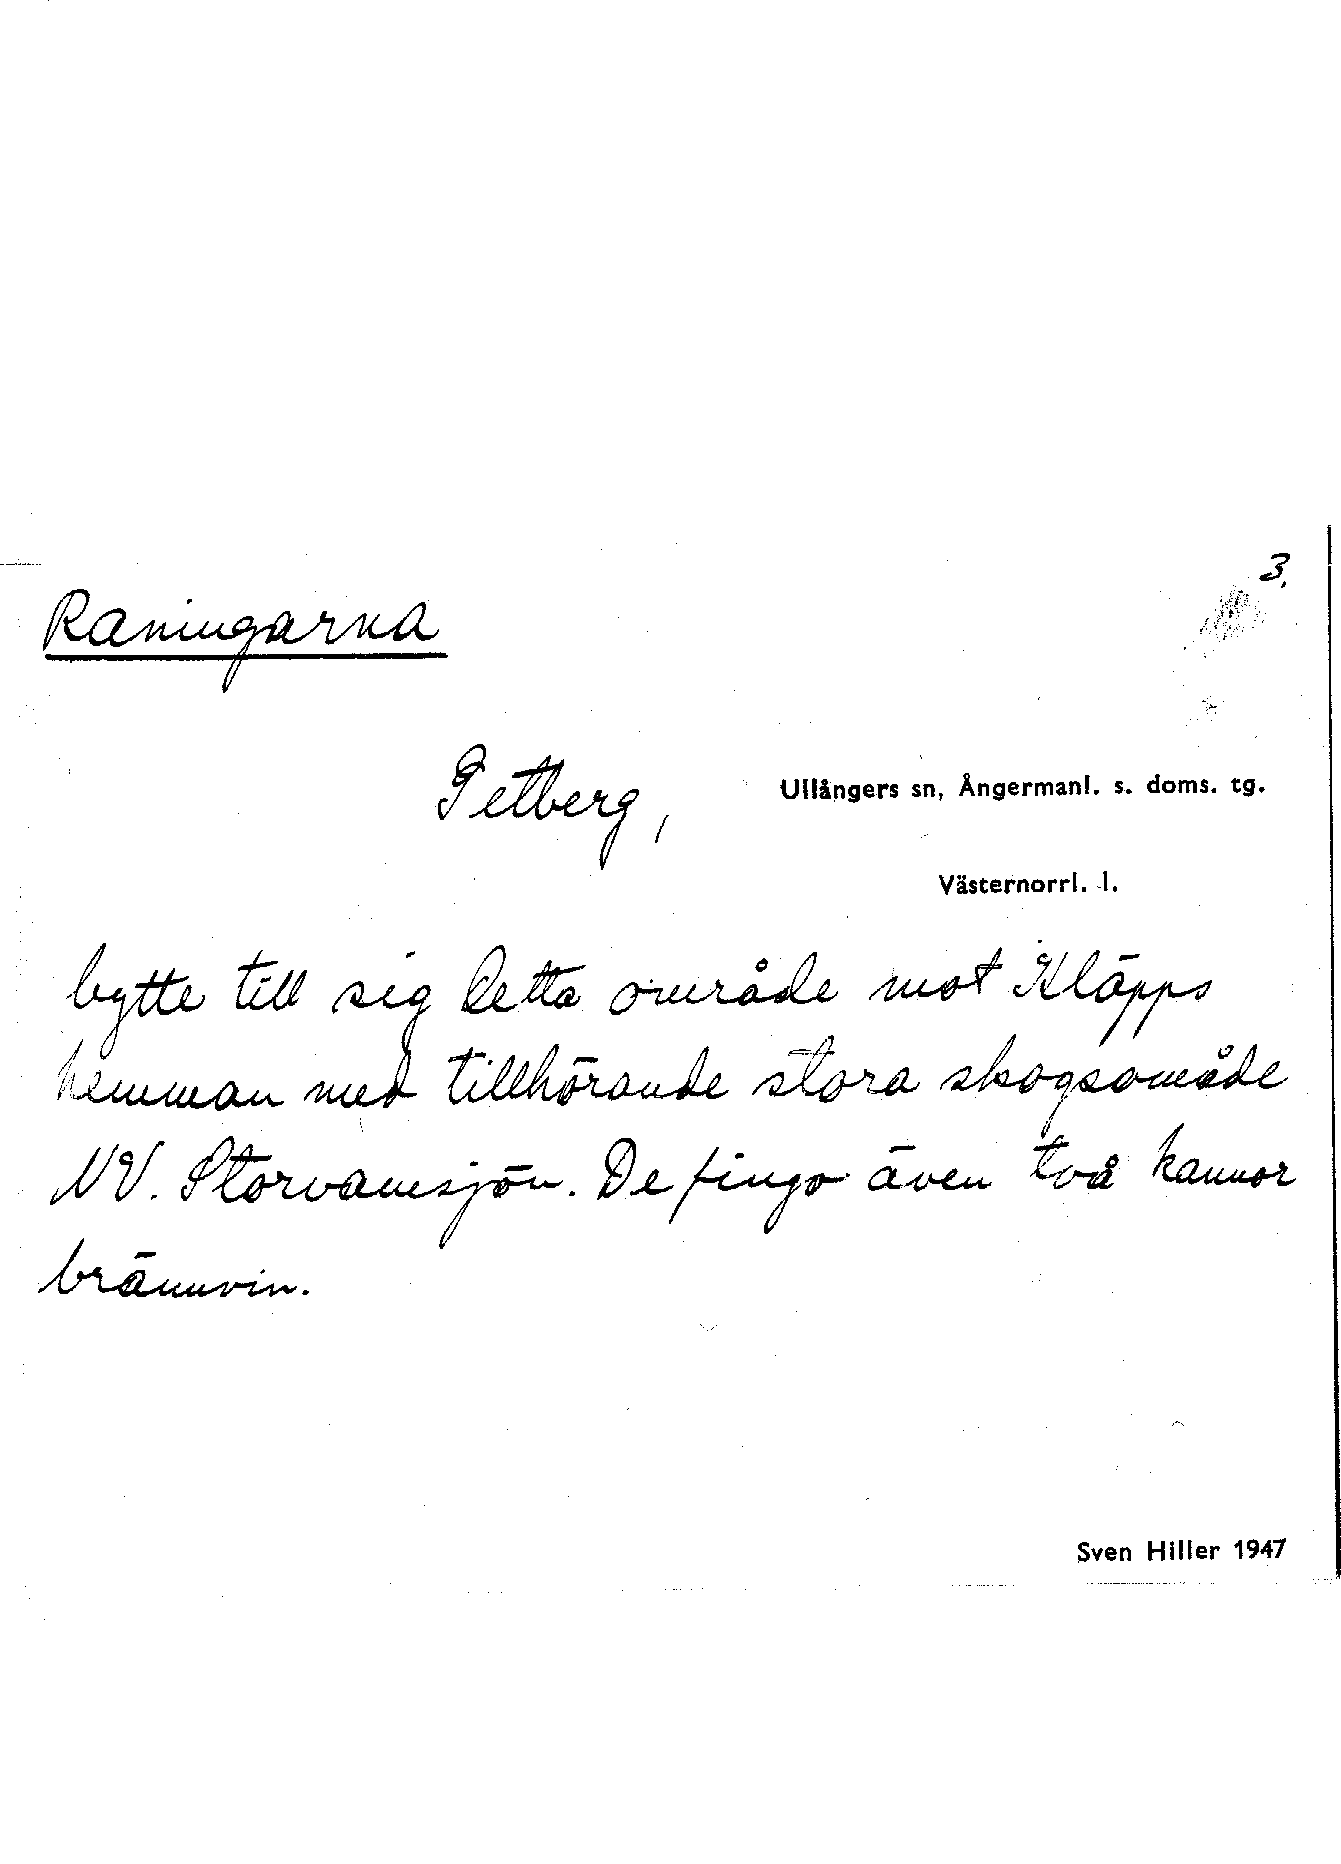 3.
Raningarna
Getberg, Ullångers sn, Ångermanl. s. doms. tg.
Västernorrl. l.
bytte till sig detta område mot Kläpps
hemman med tillhörande stora skogsområde
NV. Storvamsjön. De fingo även två kannor
brännvin.
Sven Hiller 1947